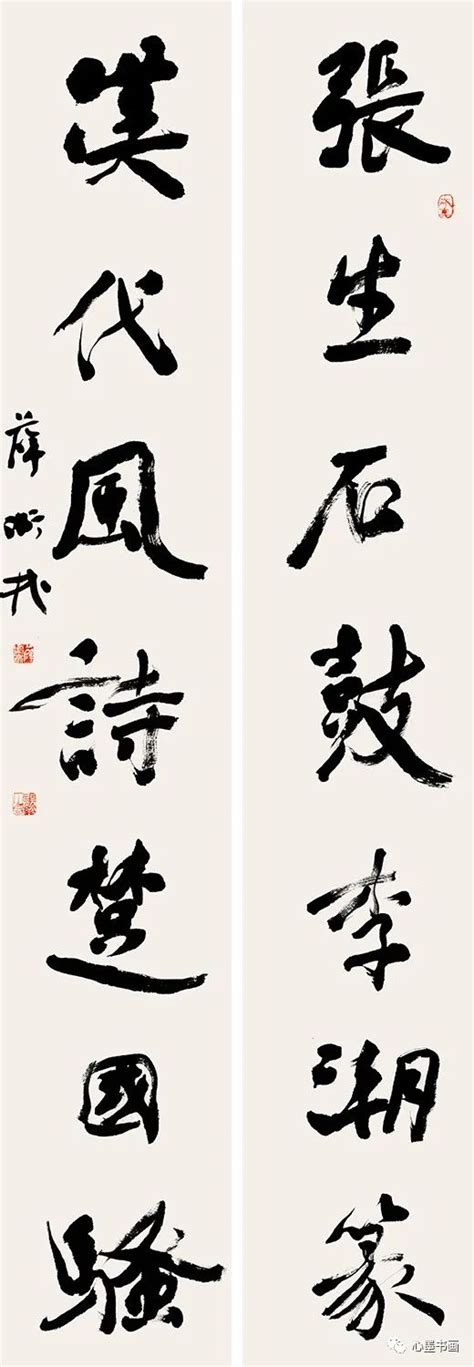 張生石鼓李潮篆
漢代風詩楚國騷
薛
心墨书画